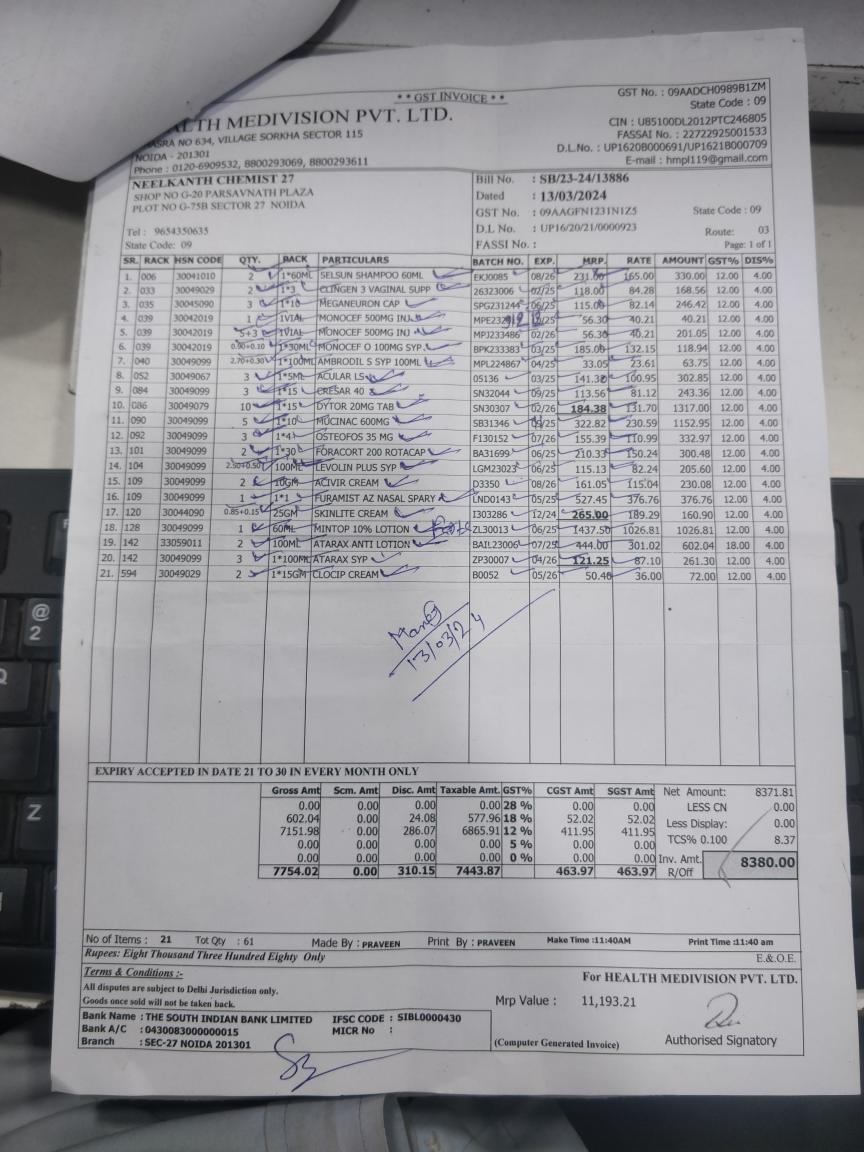 * * GST INVOICE * *
GST No. : 09AADCH0989B1ZM
State Code : 09
ALTH MEDIVISION PVT. LTD.
CIN : U85100DL2012PTC246805
ASRA NO 634, VILLAGE SORKHA SECTOR 115
FASSAI No. : 22722925001533
NOIDA - 201301
D.L.No. : UP1620B000691/UP1621B000709
Phone : 0120-6909532, 8800293069, 8800293611
E-mail : hmpl119@gmail.com
NEELKANTH CHEMIST 27
Bill No. : SB/23-24/13886
SHOP NO G-20 PARSAVNATH PLAZA
Dated : 13/03/2024
PLOT NO G-75B SECTOR 27 NOIDA
GST No. : 09AAGFN1231N1Z5 State Code : 09
Tel : 9654350635
D.L No. : UP16/20/21/0000923 Route: 03
State Code: 09
FASSI No. : Page: 1 of 1
SR. RACK HSN CODE QTY. PACK PARTICULARS BATCH NO. EXP. MRP. RATE AMOUNT GST% DIS%
1. 006 30041010 2 1*60ML SELSUN SHAMPOO 60ML EKJ0085 08/26 231.00 165.00 330.00 12.00 4.00
2. 033 30049029 2 1*3 CLINGEN 3 VAGINAL SUPP 26323006 02/25 118.00 84.28 168.56 12.00 4.00
3. 035 30045090 3 1*10 MEGANEURON CAP SPG231244 06/25 115.00 82.14 246.42 12.00 4.00
4. 039 30042019 1 1VIAL MONOCEF 500MG INJ 56.30 40.21 40.21 12.00 4.00
5. 039 30042019 5+3 1VIAL MONOCEF 500MG INJ MPJ233486 02/26 56.30 40.21 201.05 12.00 4.00
6. 039 30042019 0.90+0.10 1*30ML MONOCEF O 100MG SYP BPK233383 03/25 185.06 132.15 118.94 12.00 4.00
7. 040 30049099 2.70+0.30 1*100ML AMBRODIL S SYP 100ML MPL224867 04/25 33.05 23.61 63.75 12.00 4.00
8. 052 30049067 3 1*5ML ACULAR LS 05136 03/25 141.32 100.95 302.85 12.00 4.00
9. 084 30049099 3 1*15 CRESAR 40 SN32044 09/25 113.56 81.12 243.36 12.00 4.00
10. 086 30049079 10 1*15 DYTOR 20MG TAB SN30307 02/26 184.38 131.70 1317.00 12.00 4.00
11. 090 30049099 5 1*10 MUCINAC 600MG SB31346 09/25 322.82 230.59 1152.95 12.00 4.00
12. 092 30049099 3 1*4 OSTEOFOS 35 MG F130152 07/26 155.39 110.99 332.97 12.00 4.00
13. 101 30049099 2 1*30 FORACORT 200 ROTACAP BA31699 06/25 210.33 150.24 300.48 12.00 4.00
14. 104 30049099 2.50+0.50 100ML LEVOLIN PLUS SYP LGM23023 06/25 115.13 82.24 205.60 12.00 4.00
15. 109 30049099 2 10GM ACIVIR CREAM D3350 08/26 161.05 115.04 230.08 12.00 4.00
16. 109 30049099 1 1*1 FURAMIST AZ NASAL SPARY LND0143 05/25 527.45 376.76 376.76 12.00 4.00
17. 120 30044090 0.85+0.15 25GM SKINLITE CREAM I303286 12/24 265.00 189.29 160.90 12.00 4.00
18. 128 30049099 1 60ML MINTOP 10% LOTION ZL30013 06/25 1437.50 1026.81 1026.81 12.00 4.00
19. 142 33059011 2 100ML ATARAX ANTI LOTION BAIL23006 07/25 444.00 301.02 602.04 18.00 4.00
20. 142 30049099 3 1*100ML ATARAX SYP ZP30007 04/26 121.25 87.10 261.30 12.00 4.00
21. 594 30049029 2 1*15GM CLOCIP CREAM B0052 05/26 50.40 36.00 72.00 12.00 4.00
13/03/24
EXPIRY ACCEPTED IN DATE 21 TO 30 IN EVERY MONTH ONLY
Gross Amt Scm. Amt Disc. Amt Taxable Amt. GST% CGST Amt SGST Amt Net Amount: 8371.81
0.00 0.00 0.00 0.00 28 % 0.00 0.00 LESS CN 0.00
602.04 0.00 24.08 577.96 18 % 52.02 52.02 Less Display: 0.00
7151.98 0.00 286.07 6865.91 12 % 411.95 411.95 TCS% 0.100 8.37
0.00 0.00 0.00 0.00 5 % 0.00 0.00
0.00 0.00 0.00 0.00 0 % 0.00 0.00 Inv. Amt. 8380.00
7754.02 0.00 310.15 7443.87 463.97 463.97 R/Off
No of Items : 21 Tot Qty : 61 Made By : PRAVEEN Print By : PRAVEEN Make Time :11:40AM Print Time :11:40 am
Rupees: Eight Thousand Three Hundred Eighty Only E.&O.E.
Terms & Conditions :-
For HEALTH MEDIVISION PVT. LTD.
All disputes are subject to Delhi Jurisdiction only.
Goods once sold will not be taken back.
Mrp Value : 11,193.21
Bank Name : THE SOUTH INDIAN BANK LIMITED IFSC CODE : SIBL0000430
Bank A/C : 0430083000000015 MICR No :
Branch : SEC-27 NOIDA 201301
(Computer Generated Invoice)
Authorised Signatory
@
2
Z